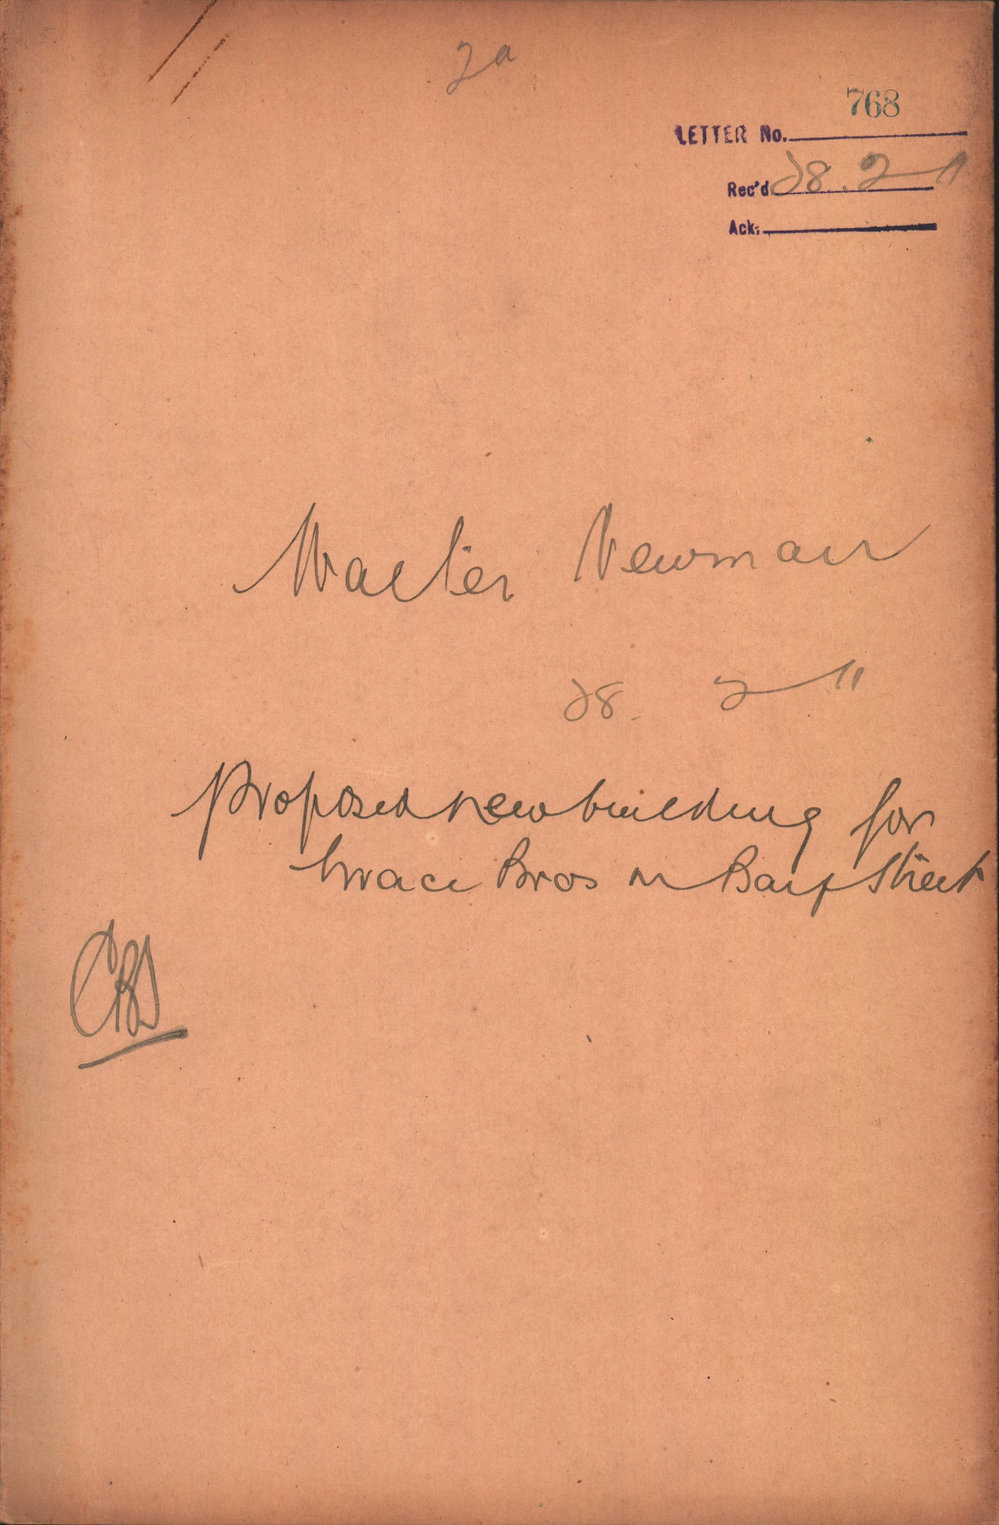 2a
768
LETTER No.
Rec'd 28.2 11
Ack:
Walter Newman
28. 2 11
Proposed new building for
Grace Bros in Bay Street